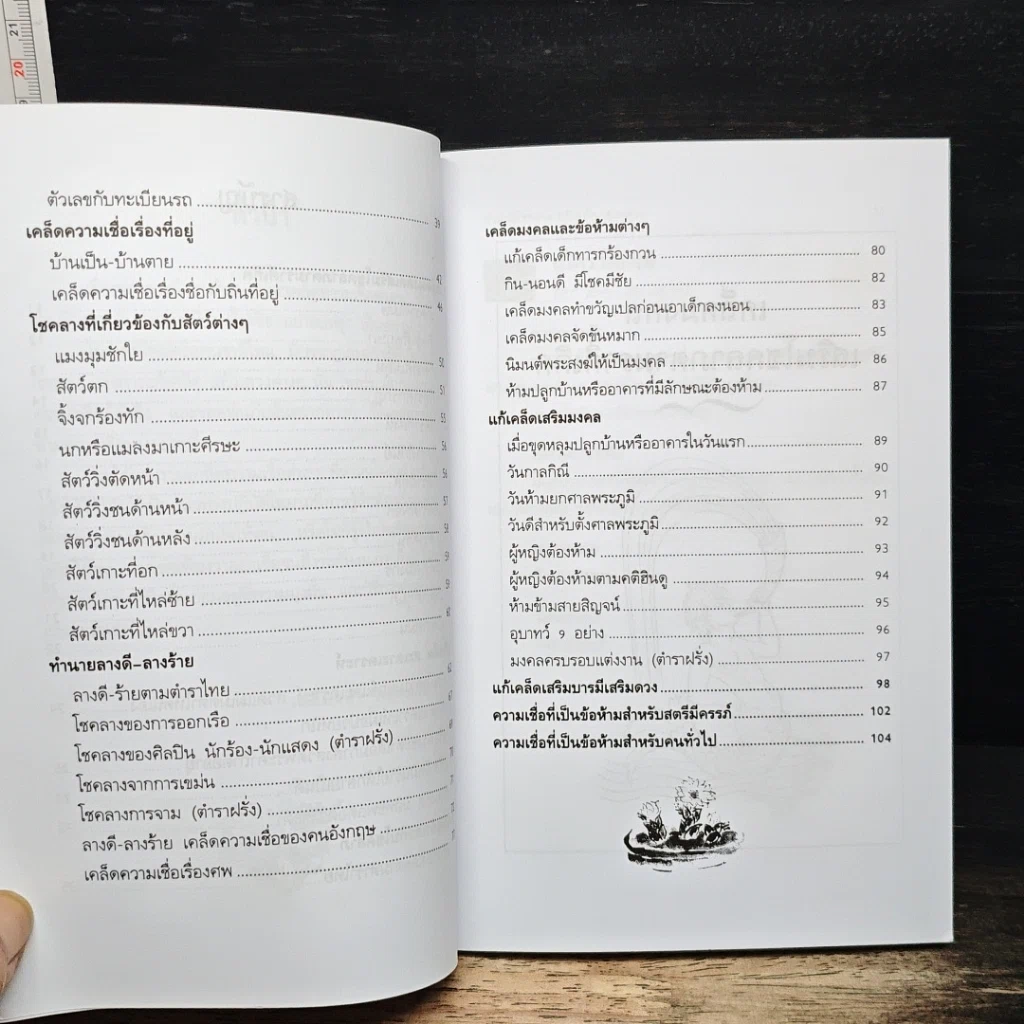 21
20
ตัวเลขกับทะเบียนรถ 39
เคล็ดความเชื่อเรื่องที่อยู่
บ้านเป็น-บ้านตาย 42
เคล็ดความเชื่อเรื่องชื่อกับถิ่นที่อยู่ 46
โชคลางที่เกี่ยวข้องกับสัตว์ต่างๆ
แมงมุมชักใย 50
สัตว์ตก 51
จิ้งจกร้องทัก 53
นกหรือแมลงมาเกาะศีรษะ
สัตว์วิ่งตัดหน้า 56
สัตว์วิ่งชนด้านหน้า 57
สัตว์วิ่งชนด้านหลัง 58
สัตว์เกาะที่อก
สัตว์เกาะที่ไหล่ซ้าย
สัตว์เกาะที่ไหล่ขวา
ทำนายลางดี-ลางร้าย
ลางดี-ร้ายตามตำราไทย
โชคลางของการออกเรือ
โชคลางของศิลปิน นักร้อง-นักแสดง (ตำราฝรั่ง)
โชคลางจากการเขม่น
โชคลางการจาม (ตำราฝรั่ง)
ลางดี-ลางร้าย เคล็ดความเชื่อของคนอังกฤษ
เคล็ดความเชื่อเรื่องศพ
เคล็ดมงคลและข้อห้ามต่างๆ
แก้เคล็ดเด็กทารกร้องกวน 80
กิน-นอนดี มีโชคมีชัย 82
เคล็ดมงคลทำขวัญเปลก่อนเอาเด็กลงนอน 83
เคล็ดมงคลจัดขันหมาก 85
นิมนต์พระสงฆ์ให้เป็นมงคล 86
ห้ามปลูกบ้านหรืออาคารที่มีลักษณะต้องห้าม 87
แก้เคล็ดเสริมมงคล
เมื่อขุดหลุมปลูกบ้านหรืออาคารในวันแรก 89
วันกาลกิณี 90
วันห้ามยกศาลพระภูมิ 91
วันดีสำหรับตั้งศาลพระภูมิ 92
ผู้หญิงต้องห้าม 93
ผู้หญิงต้องห้ามตามคติฮินดู 94
ห้ามข้ามสายสิญจน์ 95
อุบาทว์ ๙ อย่าง 96
มงคลครบรอบแต่งงาน (ตำราฝรั่ง) 97
แก้เคล็ดเสริมบารมีเสริมดวง 98
ความเชื่อที่เป็นข้อห้ามสำหรับสตรีมีครรภ์ 102
ความเชื่อที่เป็นข้อห้ามสำหรับคนทั่วไป 104